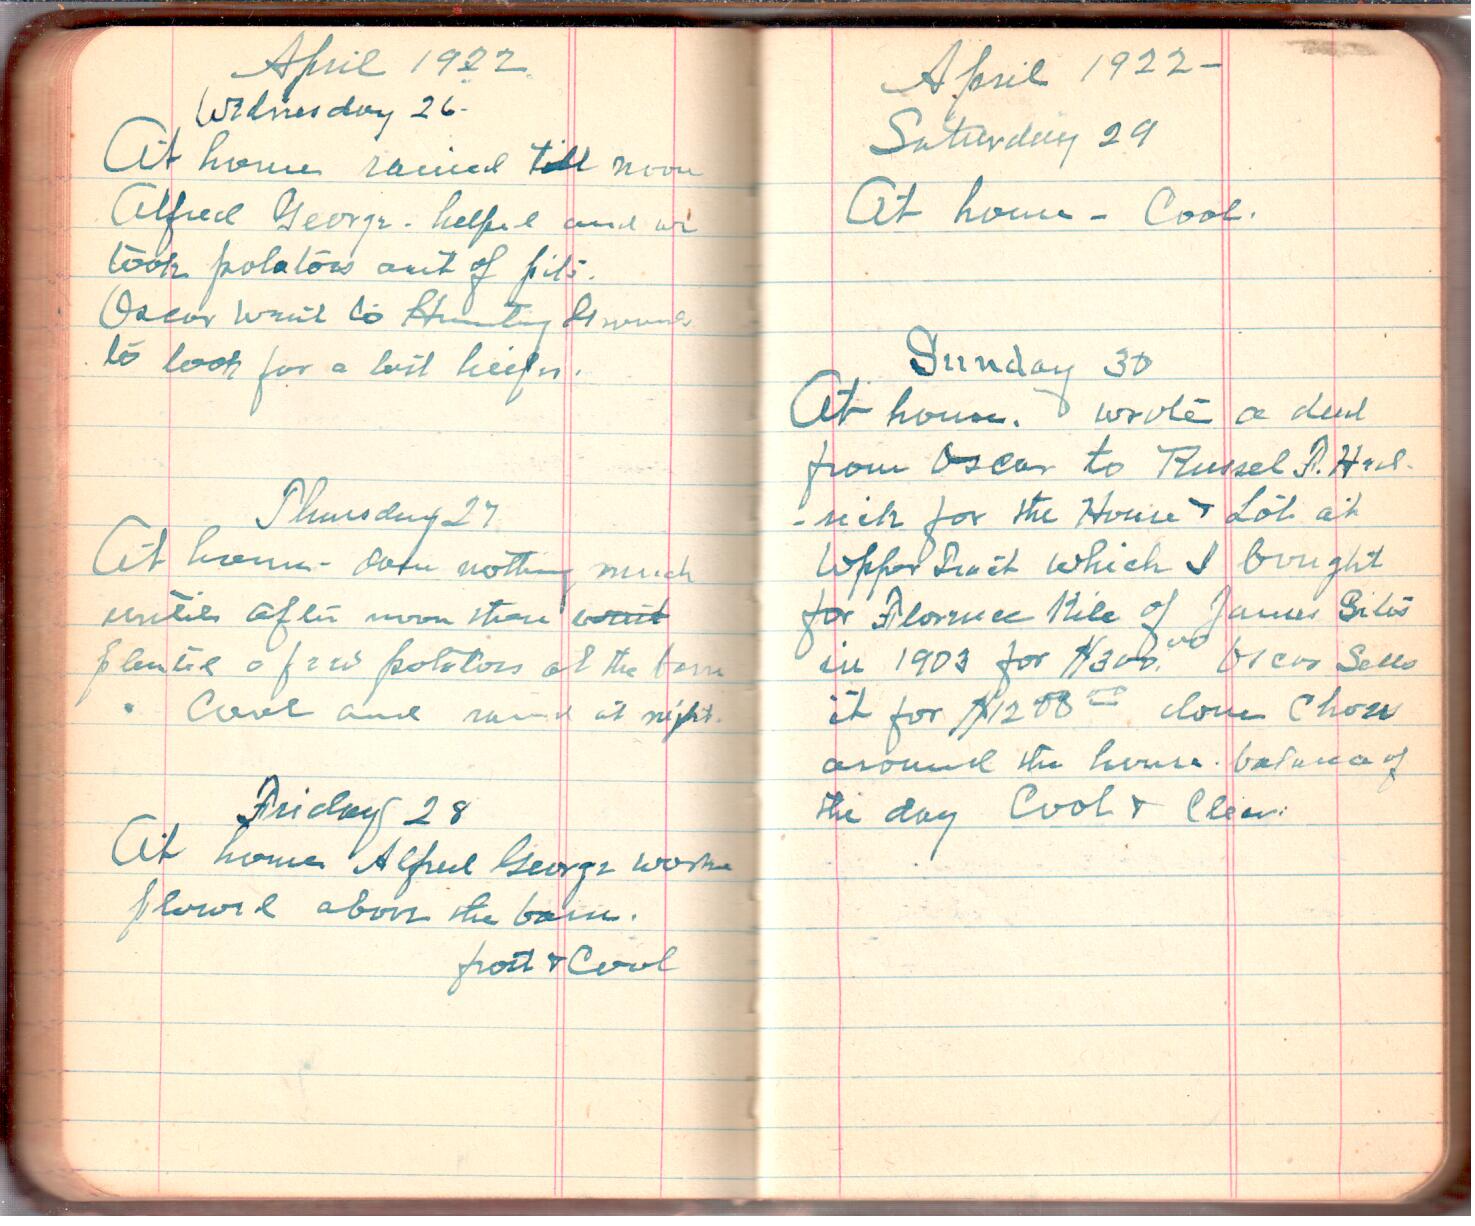 April 1922
Wednesday 26-
At home rained till noon
Alfred George - helped and we
took potatos out of pits.
Oscar went to Hunting Ground
to look for a lost heifer.
Thursday 27
At home - done nothing much
untill after noon then went
planted a few potatos at the barn
Cool and rained at night.
Friday 28
At home Alfred George worke
plowed above the barn.
frost & Cool
April 1922-
Saturday 29
At home - Cool.
Sunday 30
At home. wrote a deed
from Oscar to Russel F. Hed-
-rick for the House & Lot at
Upper Tract which I bought
for Florence Kile of James
in 1903 for $300.00 Oscar Sells
it for $1200 00 done Chors
around the house. balance of
the day Cool & Clear.